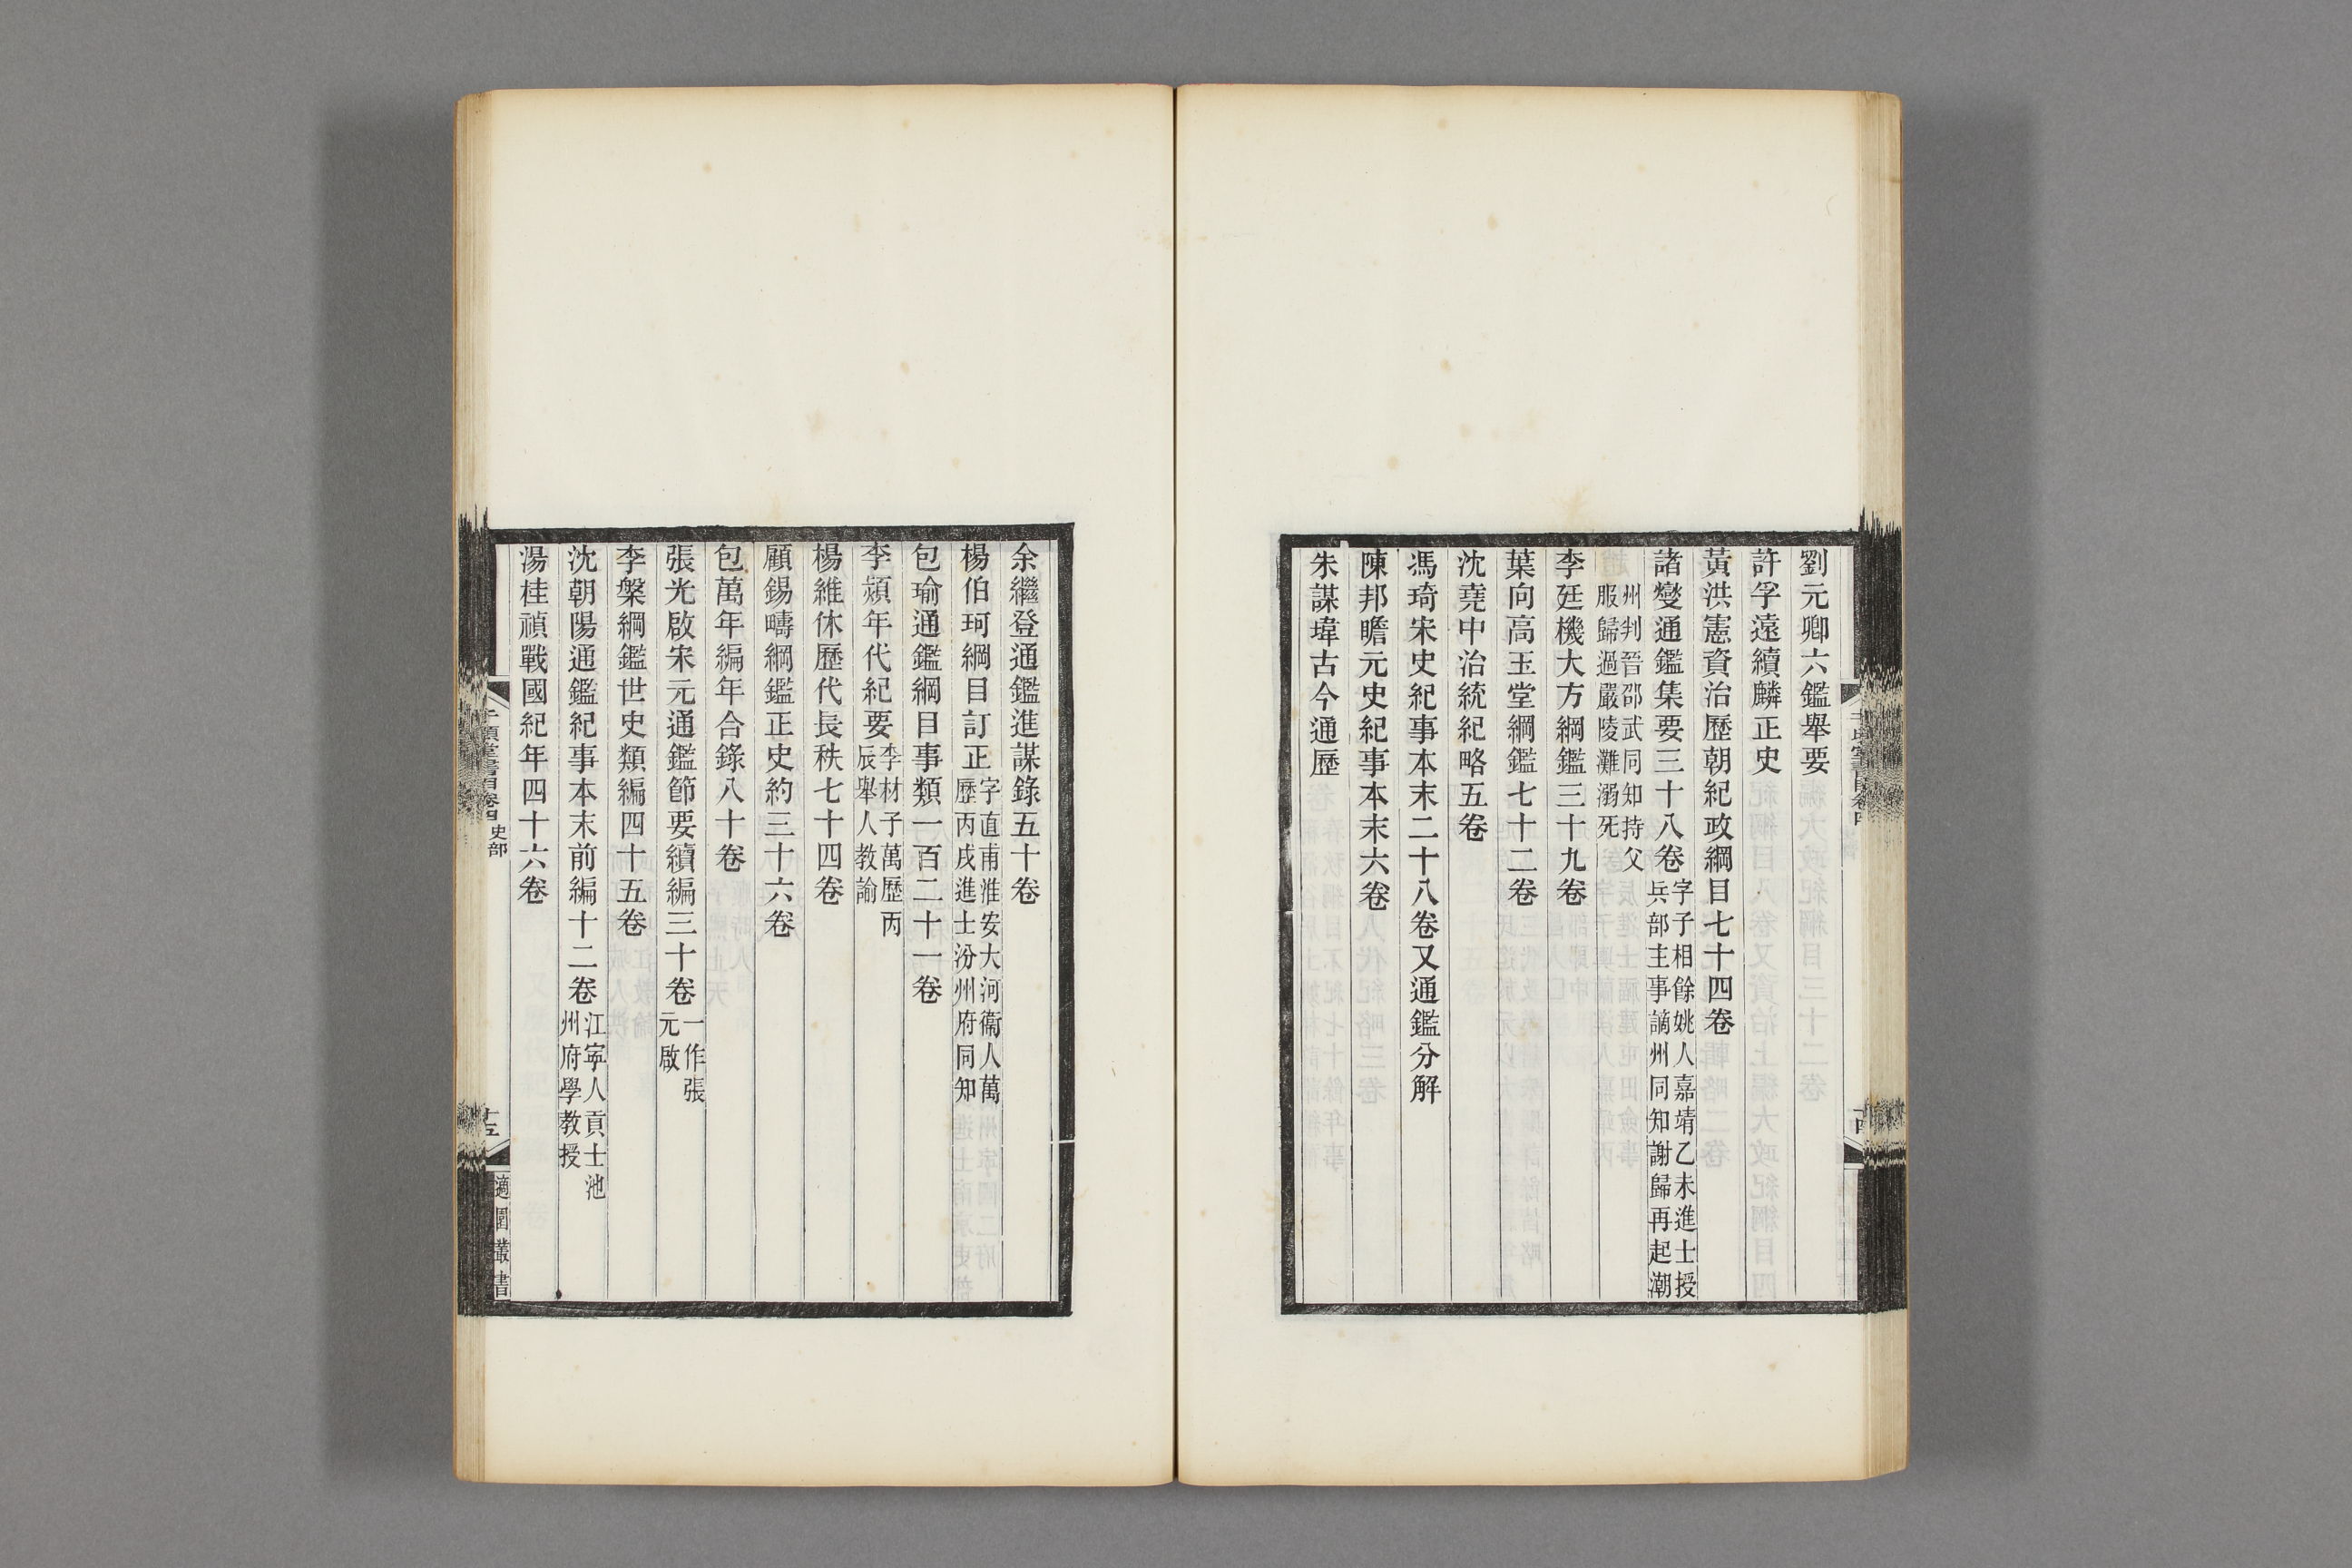 劉元卿六鑑舉要
許孚遠續麟正史
黃洪憲資治歷朝紀政綱目七十四卷
諸燮通鑑集要三十八卷
字子相餘姚人嘉靖乙未進士授
兵部主事謫州同知謝歸再起潮
州判晉邵武同知持父
服歸過嚴陵灘溺死
李廷機大方綱鑑三十九卷
葉向高玉堂綱鑑七十二卷
沈堯中治統紀略五卷
馮琦宋史紀事本末二十八卷又通鑑分解
陳邦瞻元史紀事本末六卷
朱謀㙔古今通歷
余繼登通鑑進謀錄五十卷
楊伯珂綱目訂正
字直甫淮安大河衞人萬
歷丙戌進士汾州府同知
包瑜通鑑綱目事類一百二十一卷
李熲年代紀要
李材子萬歷丙
辰舉人教諭
楊維休歷代長秩七十四卷
顧錫疇綱鑑正史約三十六卷
包萬年編年合錄八十卷
張光啟宋元通鑑節要續編三十卷
一作張
元啟
李槃綱鑑世史類編四十五卷
沈朝陽通鑑紀事本末前編十二卷
江寧人貢士池
州府學教授
湯桂禎戰國紀年四十六卷
千頃堂書目卷四
史部
十五
適園叢書